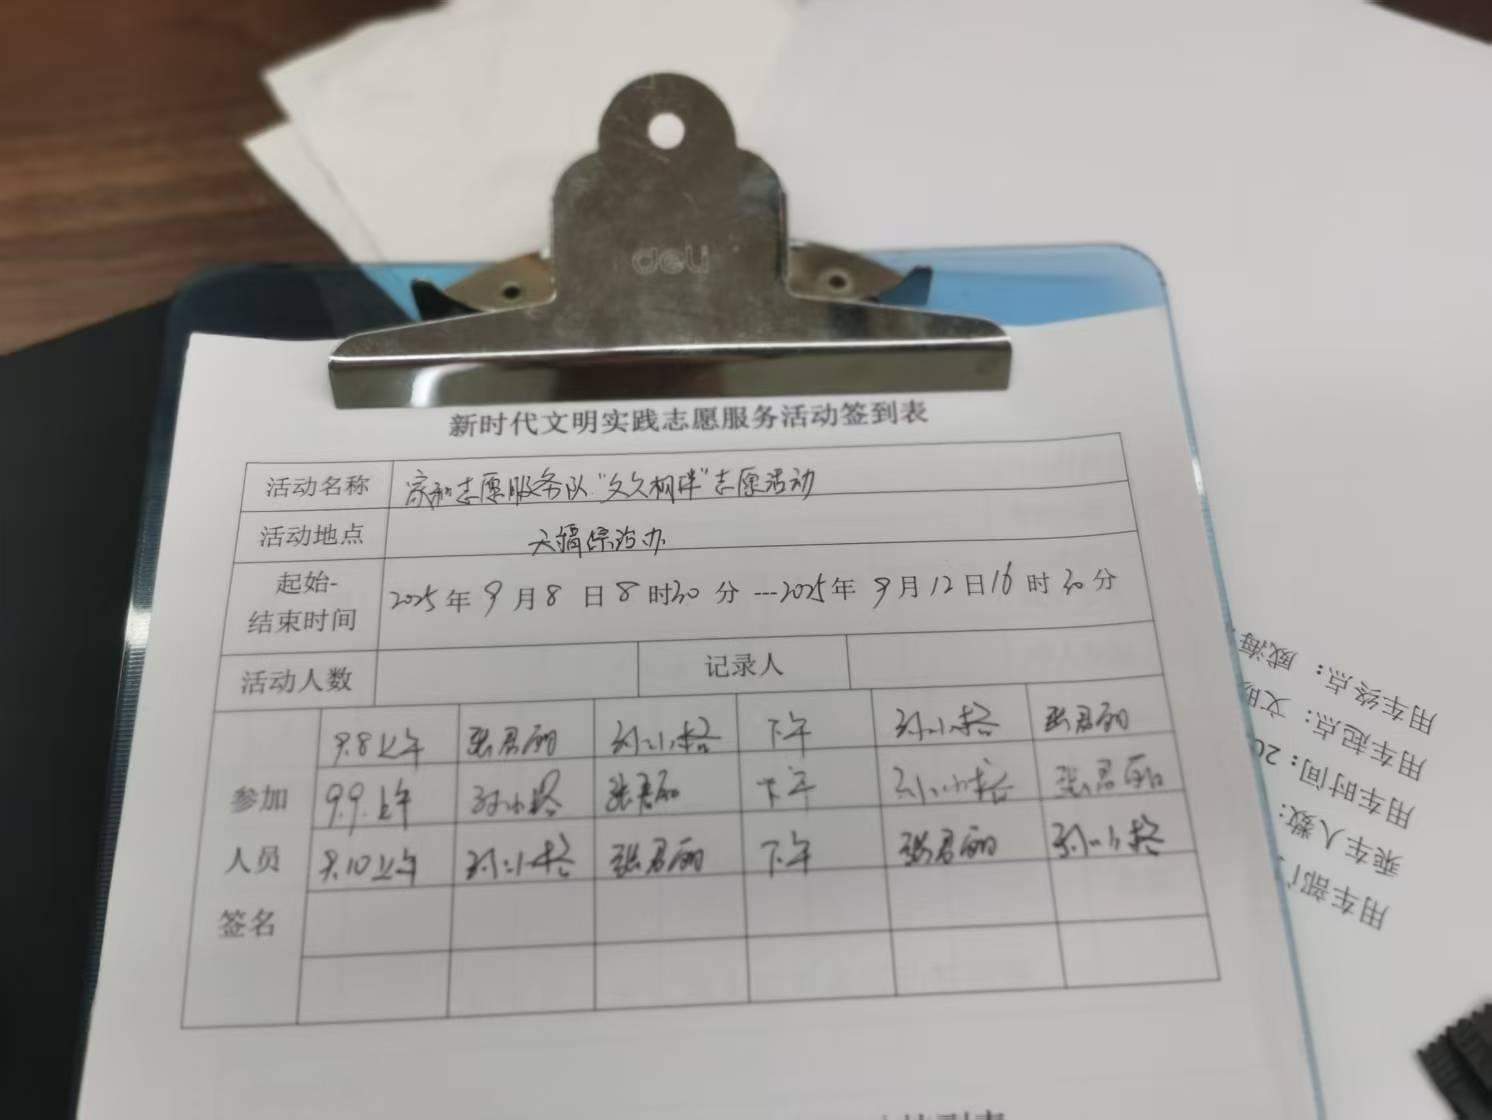 deli
新时代文明实践志愿服务活动签到表
活动名称 家和志愿服务队"文久相伴"志愿活动
活动地点 天福综治办
起始-
结束时间
2025年9月8日8时30分---2025年9月12日16时30分
活动人数 记录人
参加
人员
签名
9.8上午 张君丽 下午 张君丽
9.9.上午 张君丽 下午 张君丽
9.10上午 张君丽 下午 张君丽
用车终点：威海
用车起点：文
用车时间：20
乘车人数：
用车部门